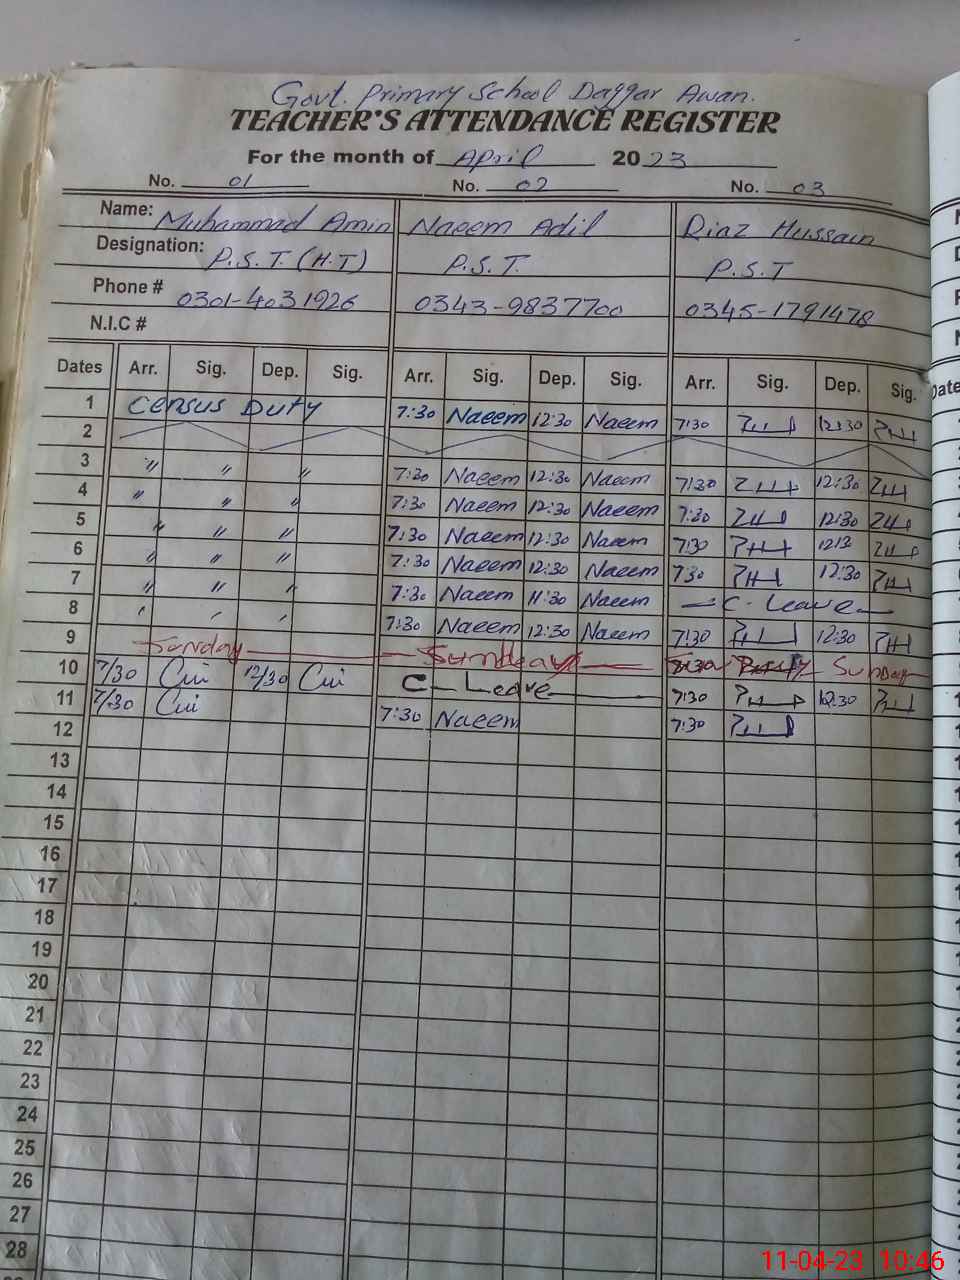 Govt. Primary School Daggar Awan.
TEACHER'S ATTENDANCE REGISTER
For the month of April 2023
No. 01 No. 02 No. 03
Name: Muhammad Amin Naeem Adil Riaz Hussain
Designation: P.S.T. (H.T) P.S.T. P.S.T
Phone # 0301-4031926 0343-9837700 0345-1791478
N.I.C #
Dates Arr. Sig. Dep. Sig. Arr. Sig. Dep. Sig. Arr. Sig. Dep. Sig.
1 Census Duty 7:30 Naeem 12:30 Naeem 7:30 12:30
2
3 " " " 7:30 Naeem 12:30 Naeem 7:30 12:30
4 " " " 7:30 Naeem 12:30 Naeem 7:30 12:30
5 " " " 7:30 Naeem 12:30 Naeem 7:30 123
6 " " " 7:30 Naeem 12:30 Naeem 730 12:30
7 " " " 7:30 Naeem 11:30 Naeem C. Leave
8 " " " 7:30 Naeem 12:30 Naeem 7:30 12:30
9 Sunday Sunday Sunday
10 7/30 12/30 C- Leave 7:30 12:30
11 7/30 7:30 Naeem 7:30
12
13
14
15
16
17
18
19
20
21
22
23
24
25
26
27
28
11-04-23 10:46